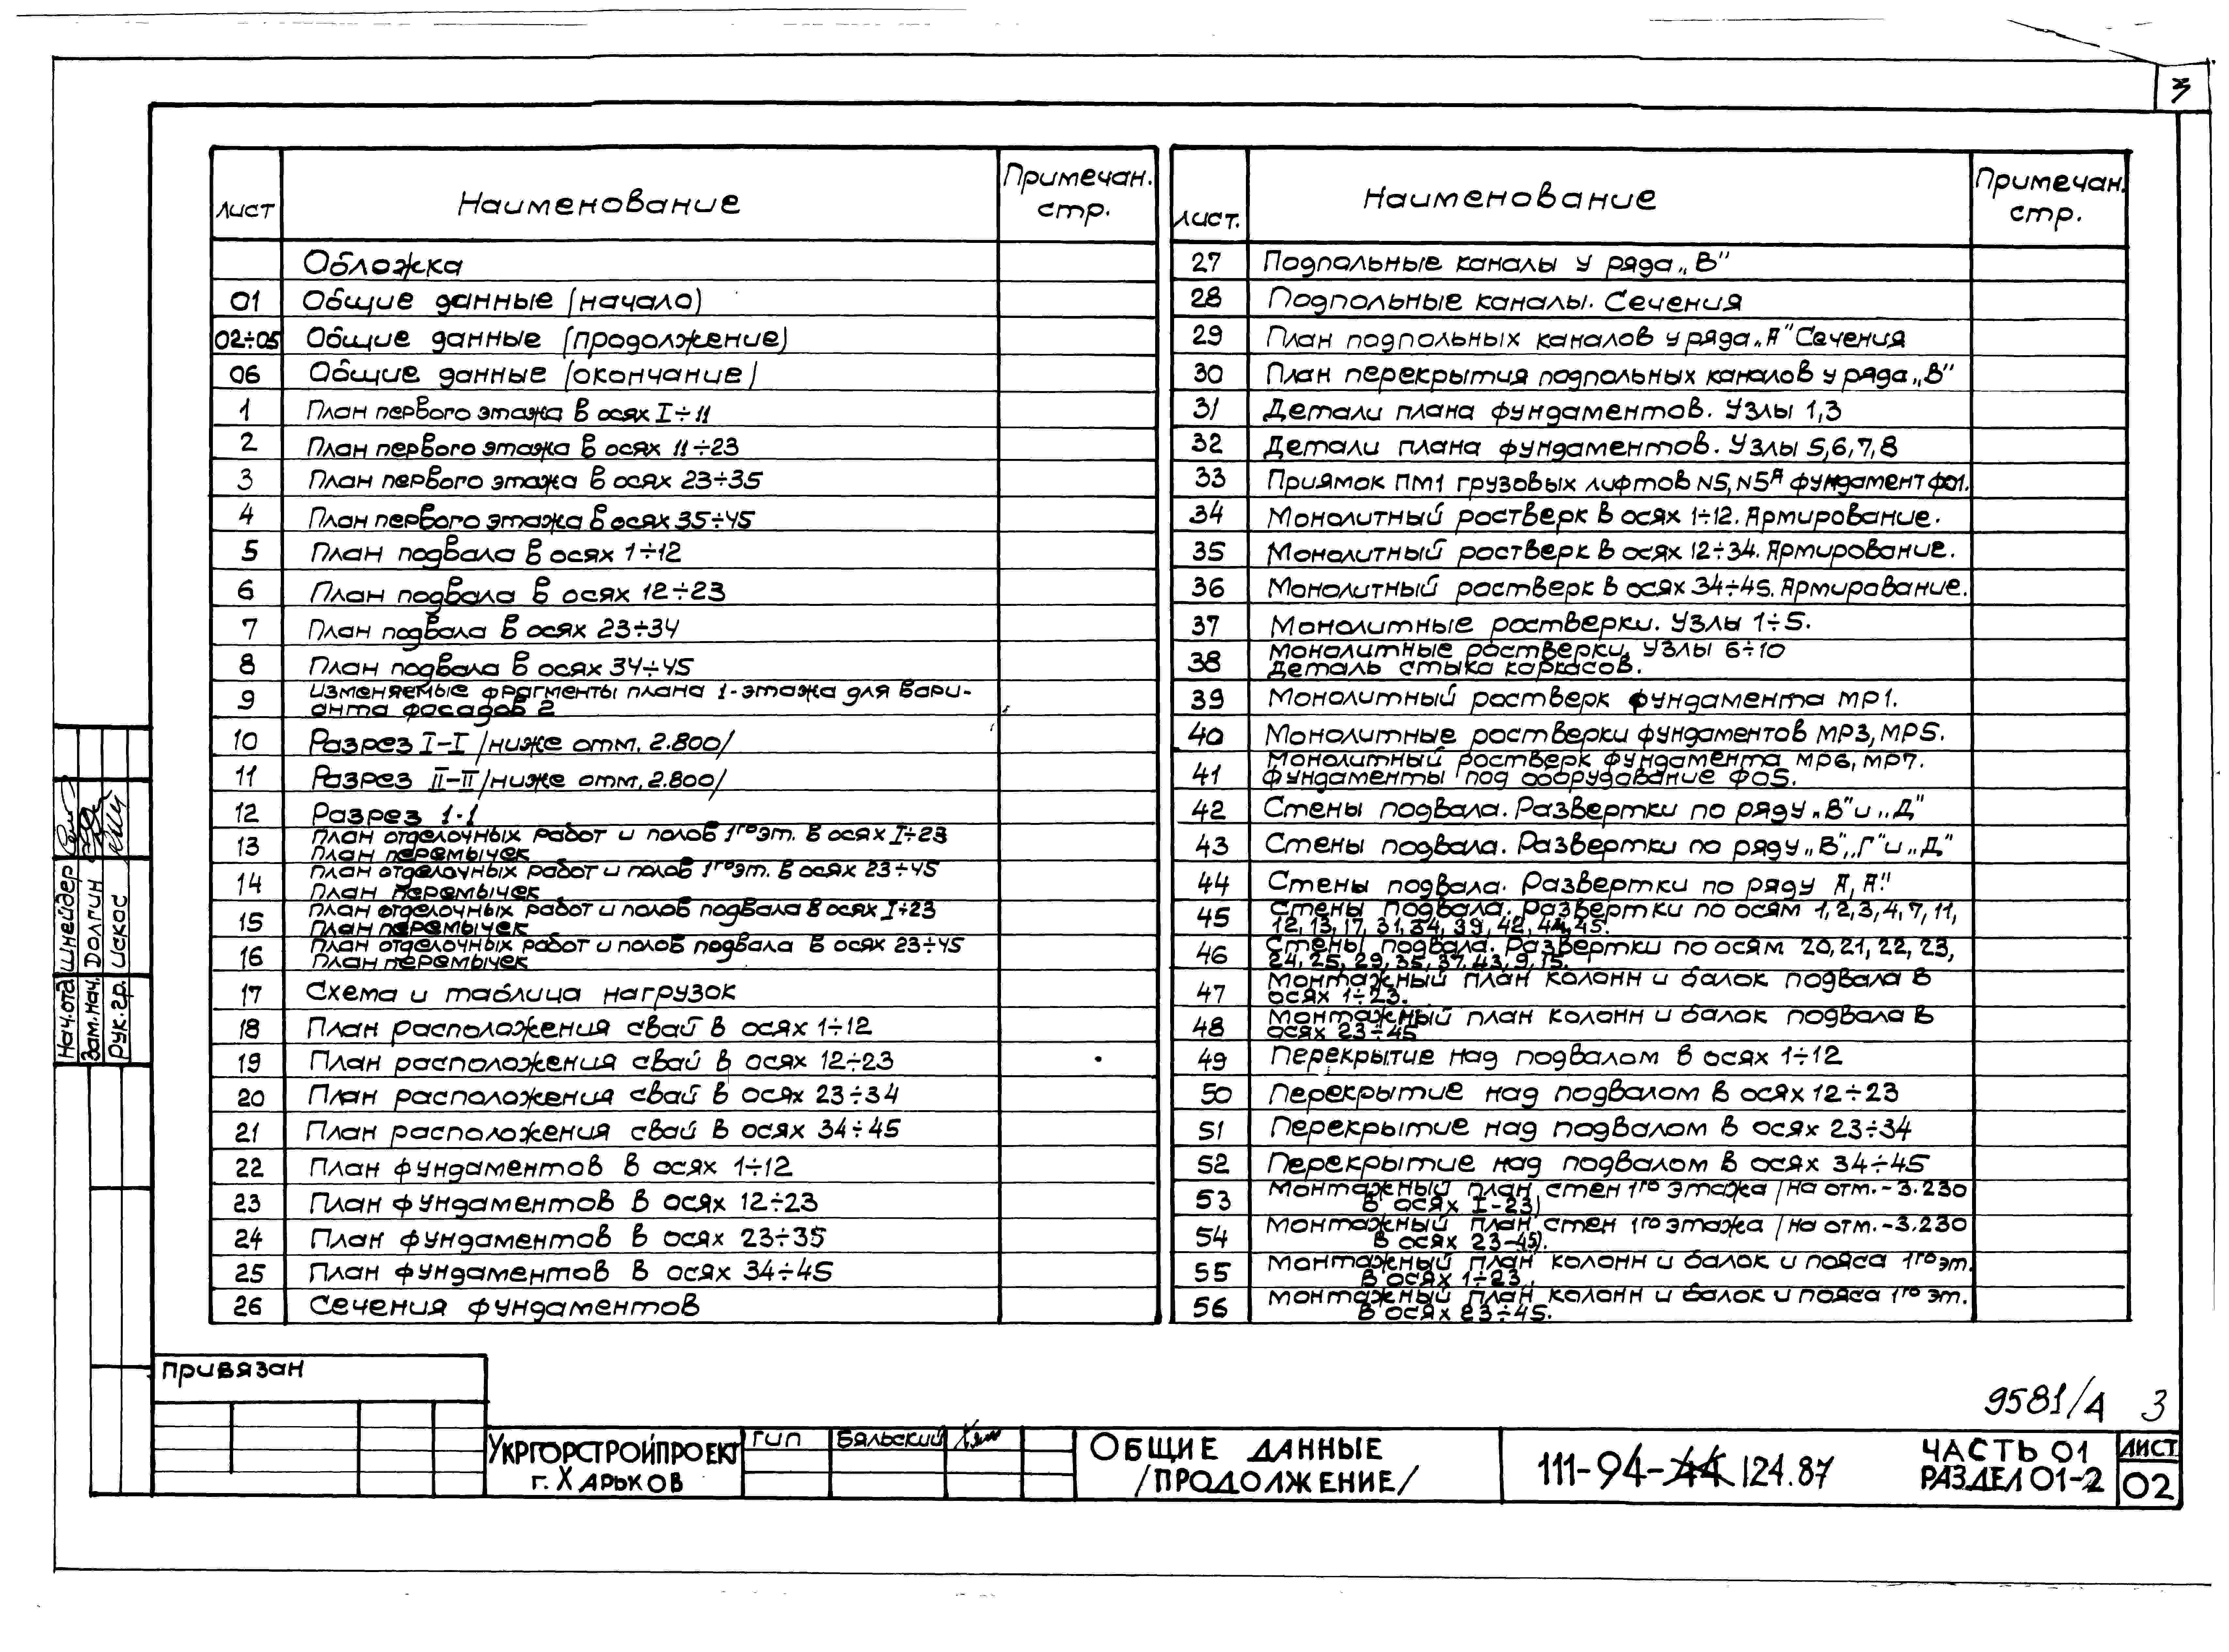 3
Лист Наименование Примечан. стр.
Обложка
01 Общие данные (начало)
02÷05 Общие данные (продолжение)
06 Общие данные (окончание)
1 План первого этажа в осях I÷11
2 План первого этажа в осях 11÷23
3 План первого этажа в осях 23÷35
4 План первого этажа в осях 35÷45
5 План подвала в осях 1÷12
6 План подвала в осях 12÷23
7 План подвала в осях 23÷34
8 План подвала в осях 34÷45
9 Изменяемые фрагменты плана 1-этажа для вари-
анта фасадов 2
10 Разрез I-I /ниже отм. 2.800/
11 Разрез II-II /ниже отм. 2.800/
12 Разрез 1-1
13 План отделочных работ и полов 1го эт. в осях I÷23
План перемычек
14 План отделочных работ и полов 1го эт. в осях 23÷45
План перемычек
15 План отделочных работ и полов подвала в осях I÷23
План перемычек
16 План отделочных работ и полов подвала в осях 23÷45
План перемычек
17 Схема и таблица нагрузок
18 План расположения свай в осях 1÷12
19 План расположения свай в осях 12÷23
20 План расположения свай в осях 23÷34
21 План расположения свай в осях 34÷45
22 План фундаментов в осях 1÷12
23 План фундаментов в осях 12÷23
24 План фундаментов в осях 23÷35
25 План фундаментов в осях 34÷45
26 Сечения фундаментов
Лист. Наименование Примечан. стр.
27 Подпольные каналы у ряда „В"
28 Подпольные каналы. Сечения
29 План подпольных каналов у ряда „А" Сечения
30 План перекрытия подпольных каналов у ряда „В"
31 Детали плана фундаментов. Узлы 1,3
32 Детали плана фундаментов. Узлы 5,6,7,8
33 Приямок ПМ1 грузовых лифтов N5, N5А фундамент Ф01.
34 Монолитный ростверк в осях 1÷12. Армирование.
35 Монолитный ростверк в осях 12÷34. Армирование.
36 Монолитный ростверк в осях 34÷45. Армирование.
37 Монолитные ростверки. Узлы 1÷5.
38 Монолитные ростверки. Узлы 6÷10
Деталь стыка каркасов.
39 Монолитный ростверк фундамента МР1.
40 Монолитные ростверки фундаментов МР3, МР5.
41 Монолитный ростверк фундамента МР6, МР7.
Фундаменты под оборудование Ф05.
42 Стены подвала. Развертки по ряду „В" и „Д"
43 Стены подвала. Развертки по ряду „В", „Г" и „Д"
44 Стены подвала. Развертки по ряду А, А."
45 Стены подвала. Развертки по осям 1, 2, 3, 4, 7, 11,
12, 13, 17, 31, 34, 39, 42, 44, 45.
46 Стены подвала. Развертки по осям 20, 21, 22, 23,
24, 25, 29, 35, 37, 43, 9, 15.
47 Монтажный план колонн и балок подвала в
осях 1÷23.
48 Монтажный план колонн и балок подвала в
осях 23÷45
49 Перекрытие над подвалом в осях 1÷12
50 Перекрытие над подвалом в осях 12÷23
51 Перекрытие над подвалом в осях 23÷34
52 Перекрытие над подвалом в осях 34÷45
53 Монтажный план стен 1го этажа /на отм. -3.230
в осях I-23)
54 Монтажный план стен 1го этажа /на отм. -3.230
в осях 23-45).
55 Монтажный план колонн и балок и пояса 1го эт.
в осях 1÷23.
56 Монтажный план колонн и балок и пояса 1го эт.
в осях 23÷45.
Нач.отд. Шнейдер
Зам.нач. Долгин
Рук.гр. Исакос
Привязан
9581/4 3
Укргорстройпроект
г. Харьков
ГИП Бяльский
Общие данные
/продолжение/
111-94-44 124.87
Часть 01
Раздел 01-2
Лист
02